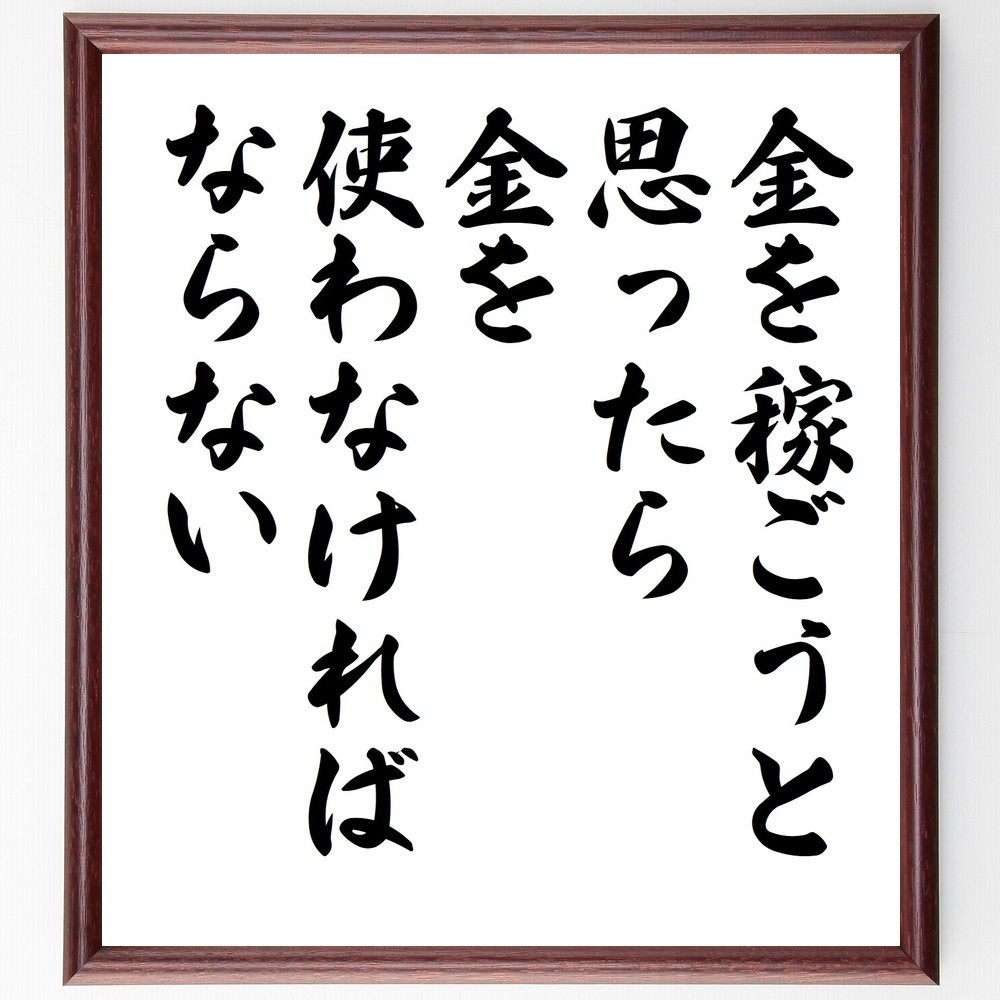 金を稼ごうと
思ったら
金を
使わなければ
ならない